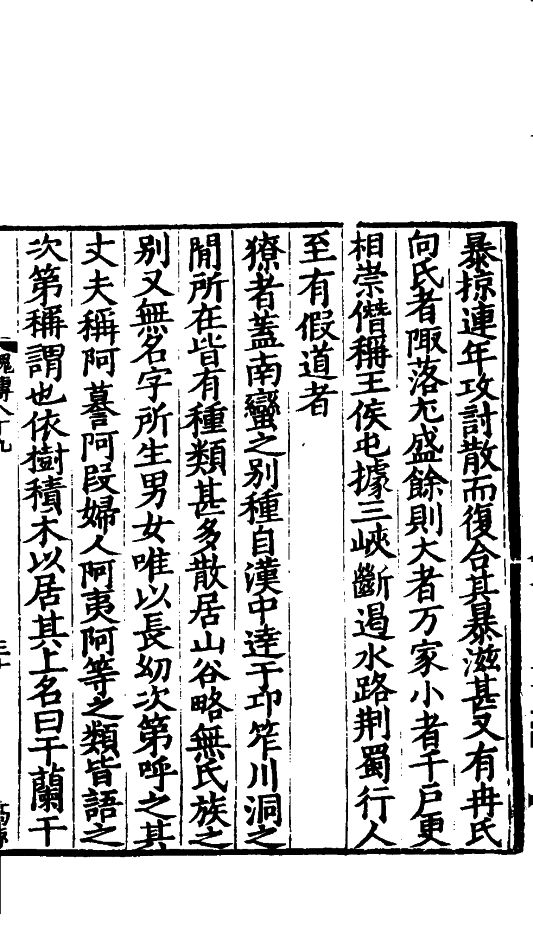 暴掠連年攻討散而復合其暴滋甚又有冉氏
向氏者陬落尤盛餘則大者万家小者千戶更
相崇僭稱王侯屯據三峽斷遏水路荆蜀行人
至有假道者
獠者蓋南蠻之别種自漢中達于卭笮川洞之
閒所在皆有種類甚多散居山谷略無氏族之
别又無名字所生男女唯以長幼次第呼之其
丈夫稱阿謩阿段婦人阿夷阿等之類皆語之
次第稱謂也依樹積木以居其上名曰干蘭干